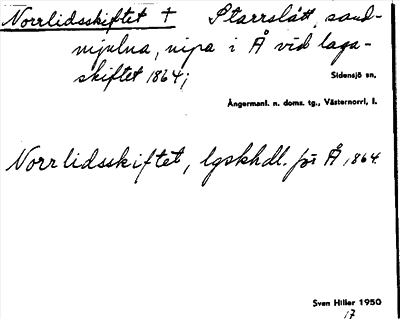 Norrlidsskiftet † Starrslått, sand-
mjuna, nipa i Å vid laga-
skiftet 1864;
Sidensjö sn,
Ångermanl. n. doms. tg., Västernorrl. l.
Norrlidsskiftet, lgskhdl. för Å 1864.
Sven Hiller 1950
17